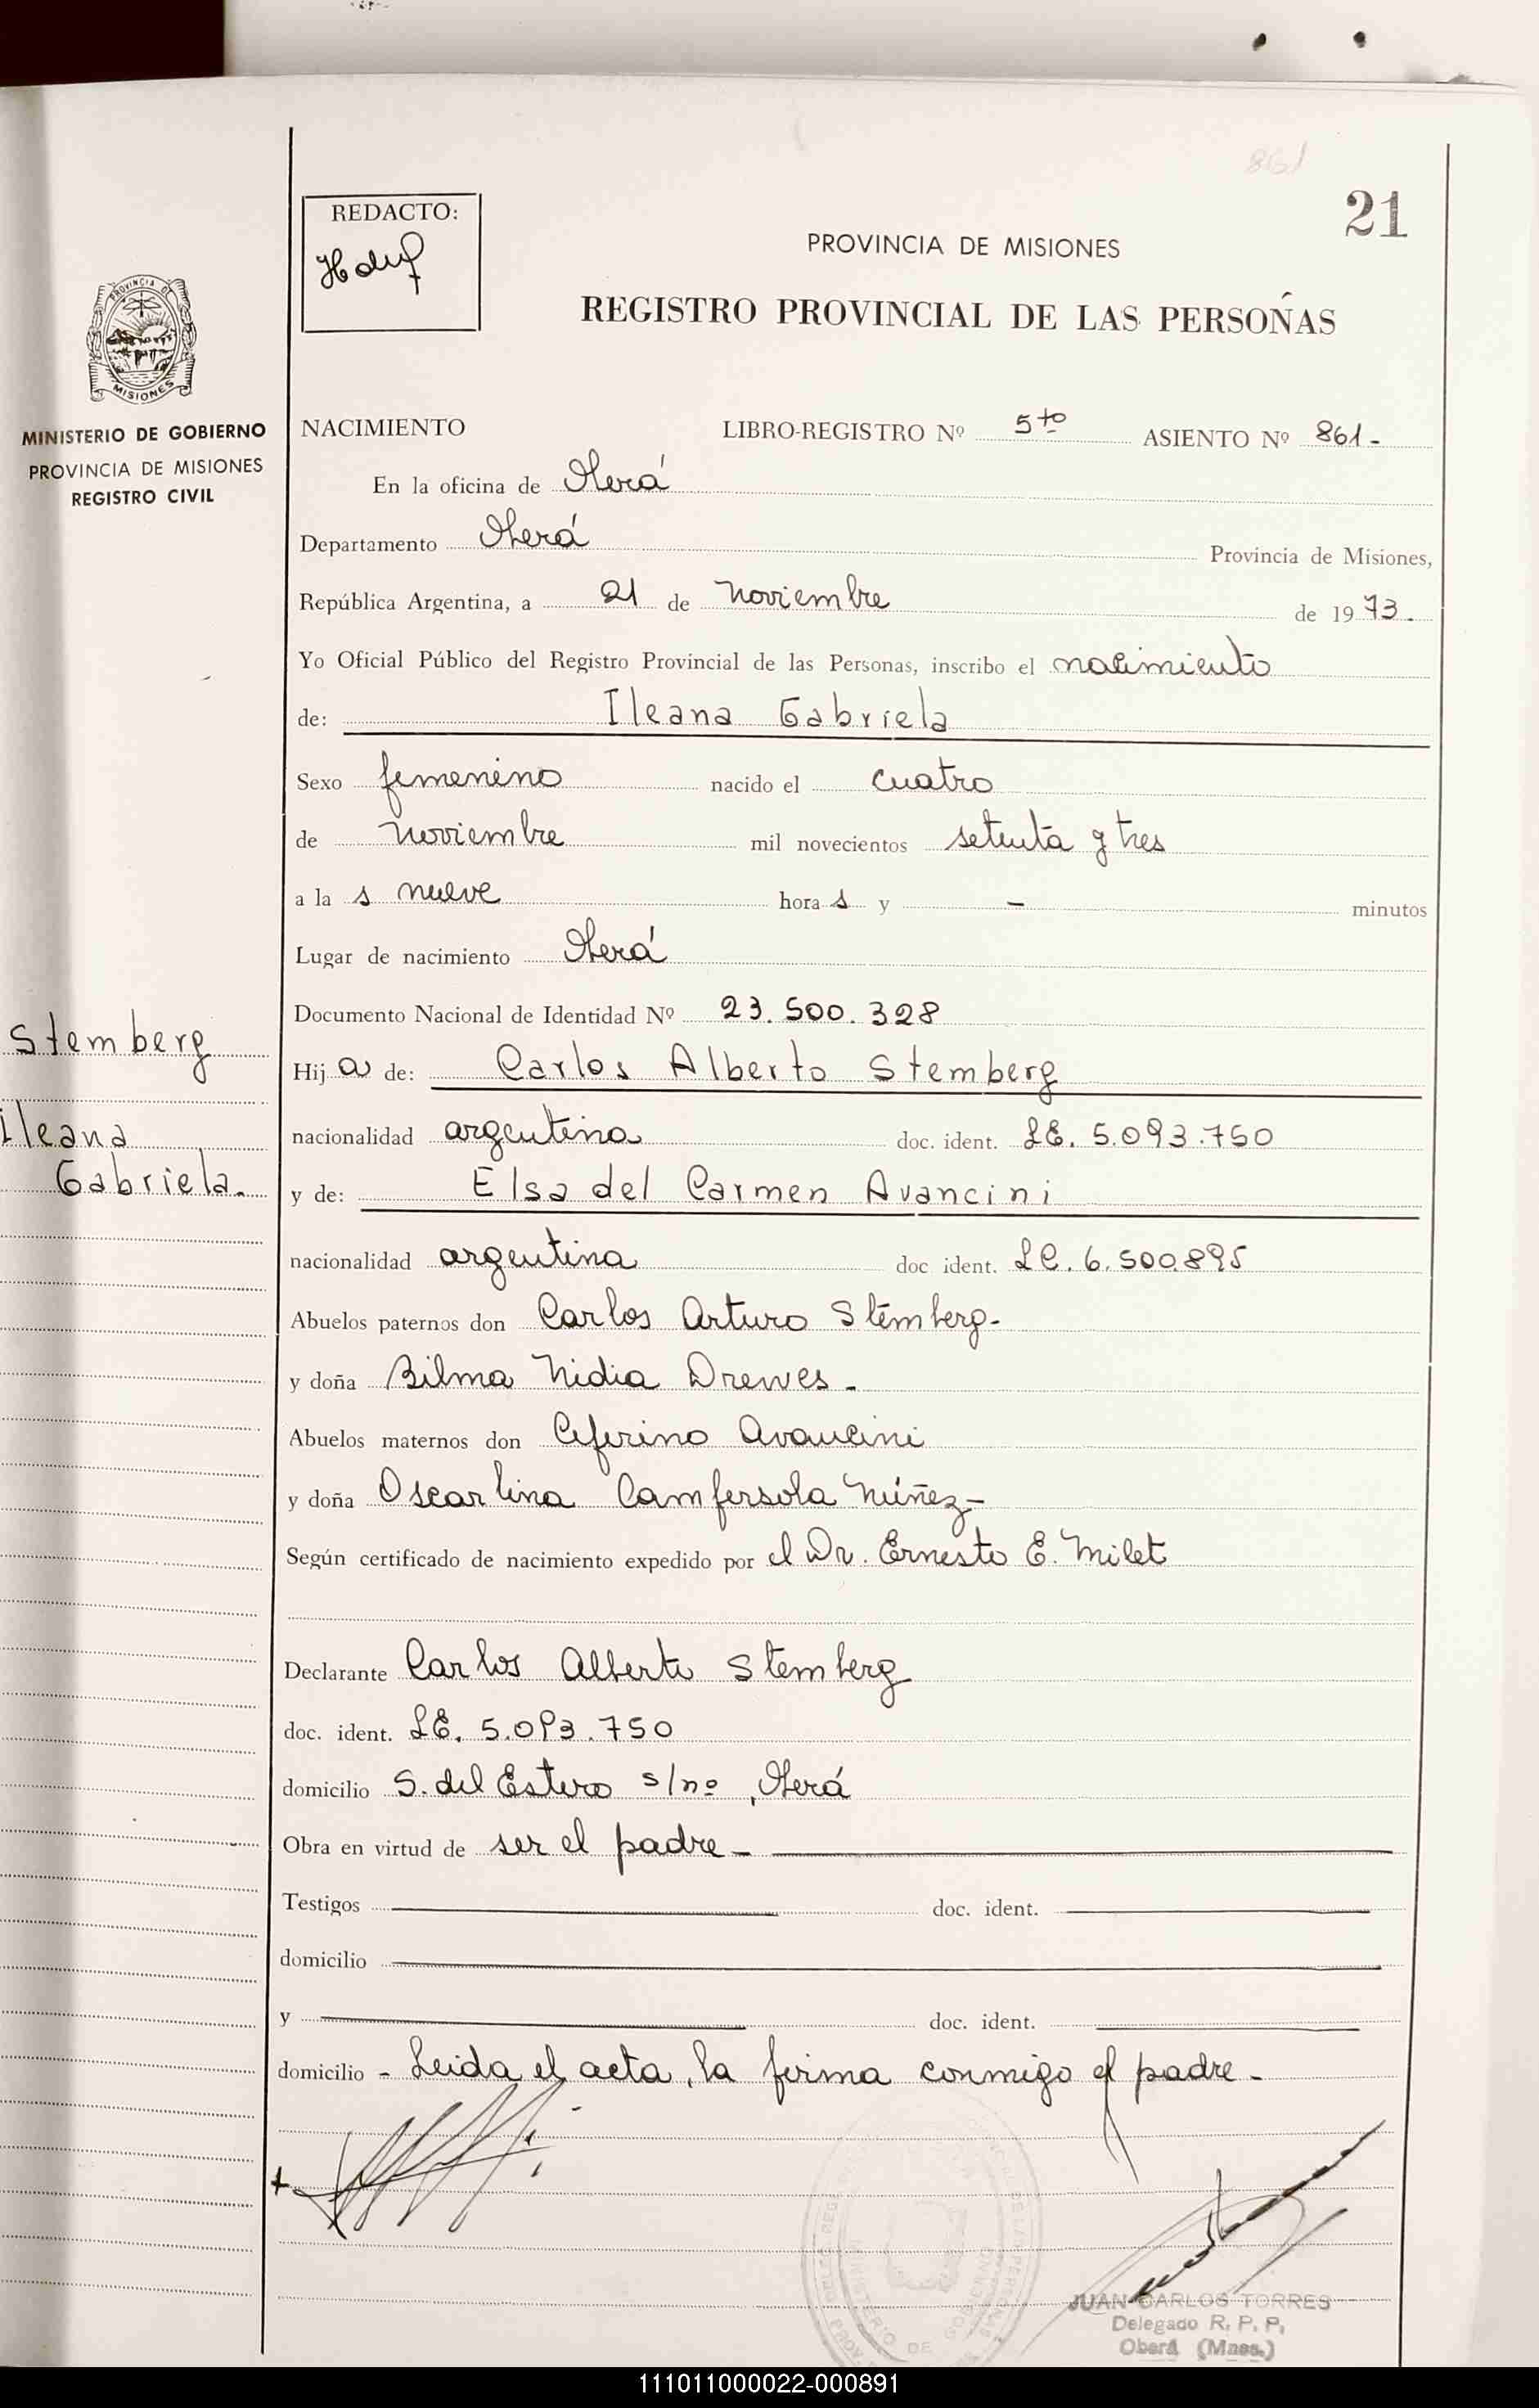 861
21
REDACTO:
PROVINCIA DE MISIONES
REGISTRO PROVINCIAL DE LAS PERSOÑAS
PROVINCIA DE
MISIONES
MINISTERIO DE GOBIERNO
PROVINCIA DE MISIONES
REGISTRO CIVIL
NACIMIENTO LIBRO-REGISTRO Nº 5to ASIENTO Nº 861-
En la oficina de Oberá
Departamento Oberá Provincia de Misiones,
República Argentina, a 21 de noviembre de 1973.
Yo Oficial Público del Registro Provincial de las Personas, inscribo el nacimiento
de: Ileana Gabriela
Sexo femenino nacido el cuatro
de noviembre mil novecientos setenta y tres
a la s nueve hora s y - minutos
Lugar de nacimiento Oberá
Documento Nacional de Identidad Nº 23.500.328
Stemberg
Hij a de: Carlos Alberto Stemberg
Ileana
nacionalidad argentina doc. ident. LE. 5.093.750
Gabriela.
y de: Elsa del Carmen Avancini
nacionalidad argentina doc ident. LC. 6.500.895
Abuelos paternos don Carlos Arturo Stemberg-
y doña Bilma Nidia Drewes-
Abuelos maternos don Ceferino Avancini
y doña Oscarlina Camfersola Núñez-
Según certificado de nacimiento expedido por el Dr. Ernesto E. Milet
Declarante Carlos Alberto Stemberg
doc. ident. LE. 5.093.750
domicilio S. del Estero s/nº, Oberá
Obra en virtud de ser el padre-
Testigos doc. ident.
domicilio
y doc. ident.
domicilio - Leida el acta, la firma conmigo el padre-
JUAN CARLOS TORRES
Delegado R. P. P.
Oberá (Mnes.)
111011000022-000891